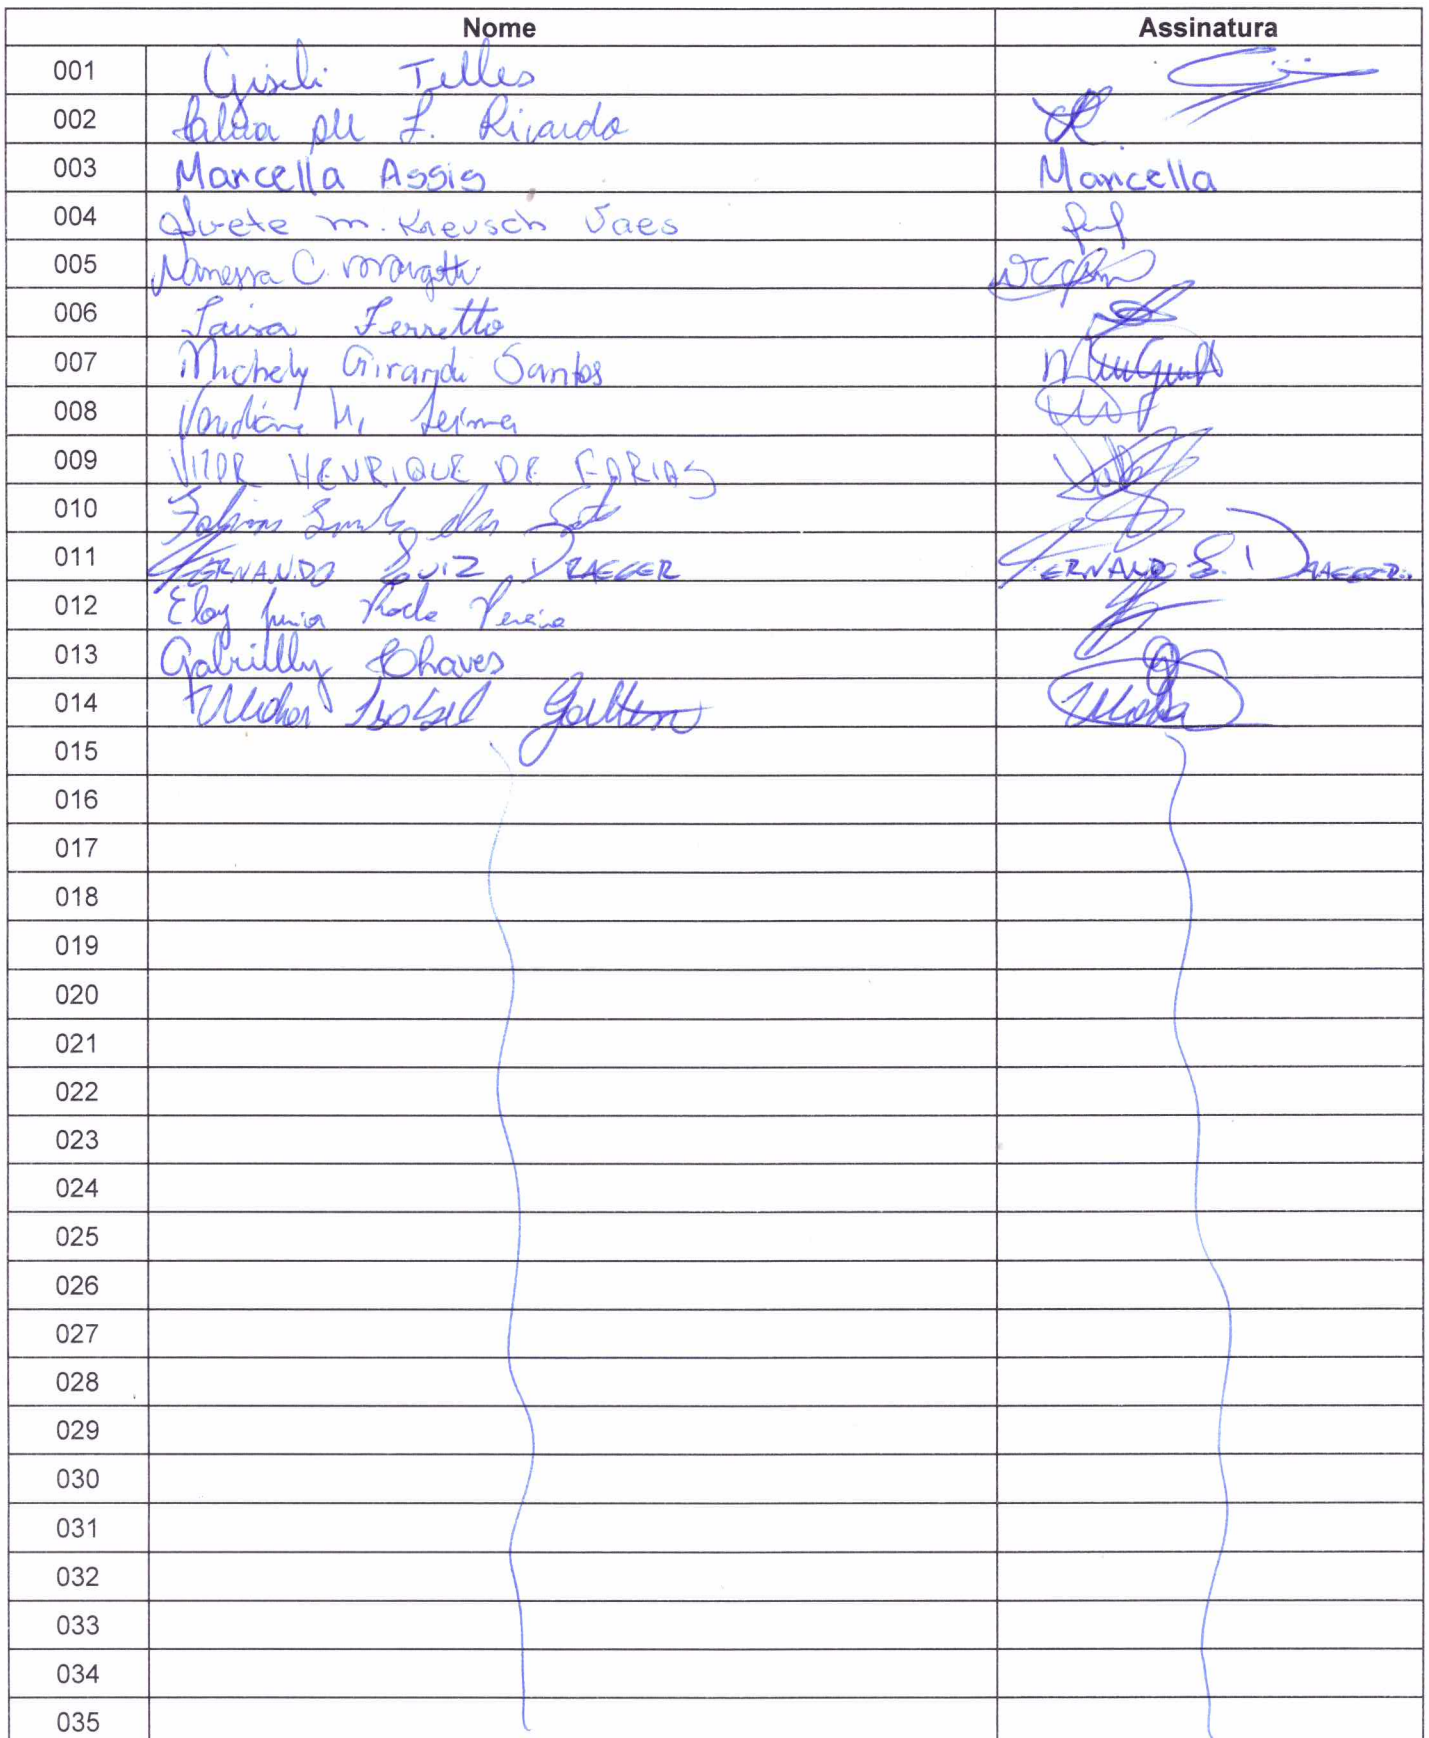 Nome Assinatura
001 Giseli Telles
002 L. Ricardo
003 Marcella Assis Marcella
004 m. Kreusch Vaes
005 Vanessa C. Margotti
006 Taisa Ferretto
007 Michely Girardi Santos
008
009 VITOR HENRIQUE DE FARIAS
010 dos
011 FERNANDO LUIZ DRAEGER FERNANDO L. DRAEGER
012 Eloy Junior Rocha Pereira
013 Gabrielly Chaves
014 Isabel
015
016
017
018
019
020
021
022
023
024
025
026
027
028
029
030
031
032
033
034
035